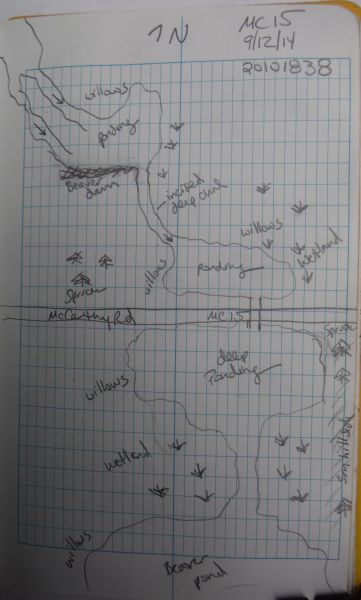 ↑N
MC15
9/12/14
20101838
willows
ponding
Beaver dam
incised deep chnl
willows
wetland
willows
ponding
Spruce
McCarthy Rd
MC15
Spruce
deep Ponding
willows
wetland
willows
Beaver pond